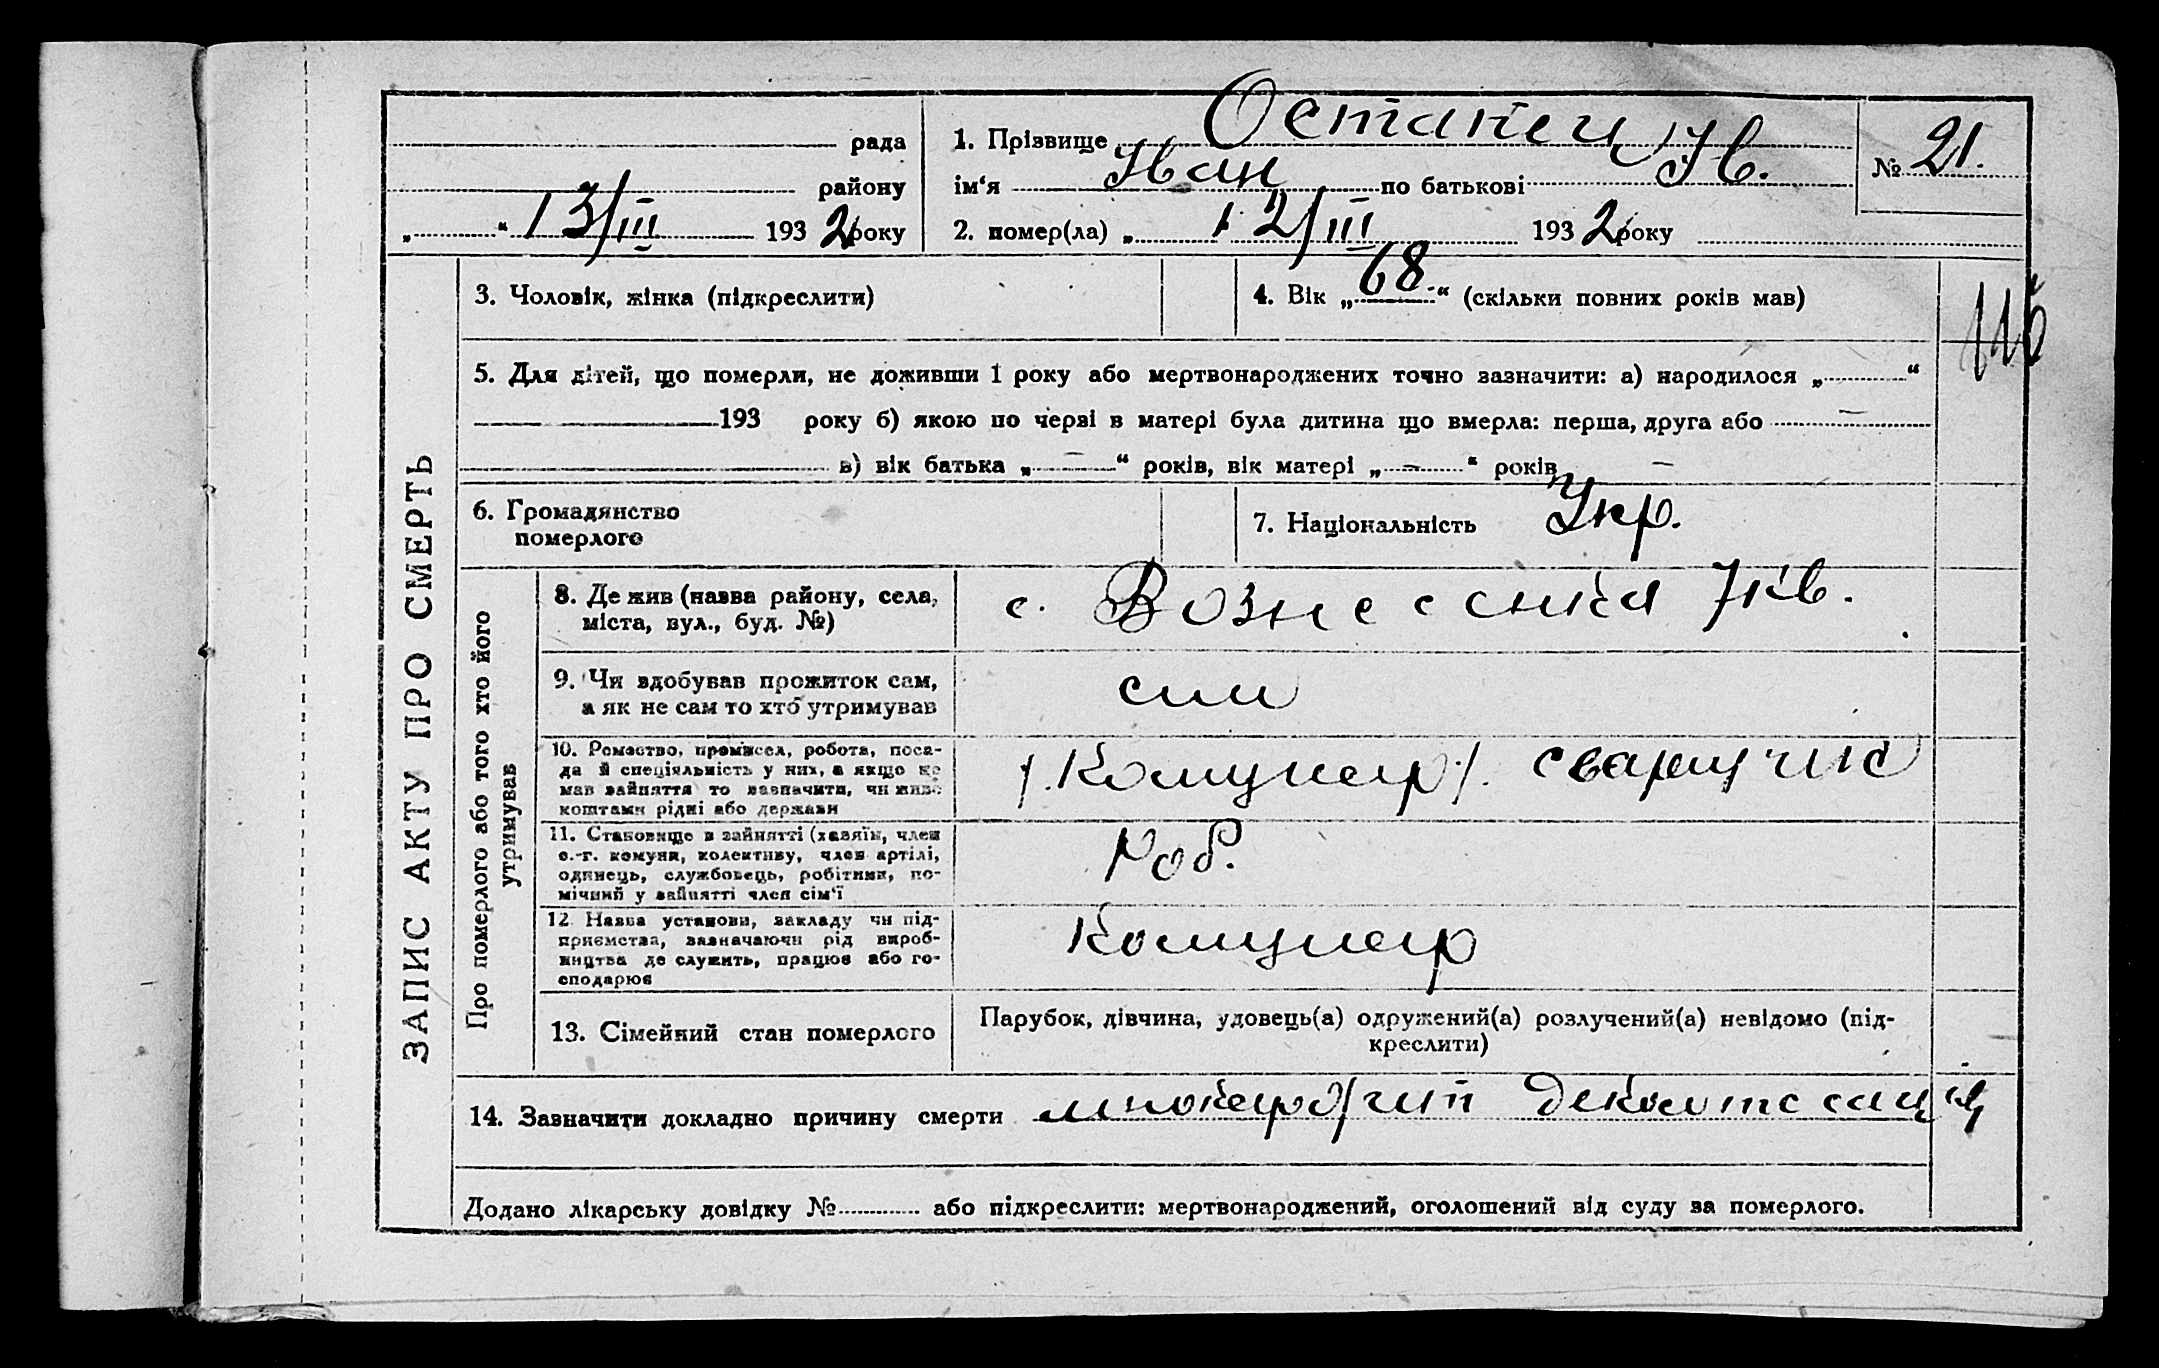 рада
району
„ “ 13/III 1932 року
1. Прізвище Остапец
ім‘я Иван по батькові Ив.
2. помер(ла) „ 12/III 1932 року
№ 21.
ЗАПИС АКТУ ПРО СМЕРТЬ
3. Чоловік, жінка (підкреслити)
4. Вік „68.“ (скільки повних років мав)
5. Для дітей, що померли, не доживши 1 року або мертвонароджених точно зазначити: а) народилося „ “
193 року б) якою по черві в матері була дитина що вмерла: перша, друга або —
в) вік батька „—“ років, вік матері „—“ років —
6. Громадянство
померлого
7. Національність Укр.
Про померлого або того хто його
утримував
8. Де жив (назва району, села,
міста, вул., буд. №)
с. Вознесенка 7 кв.
9. Чи здобував прожиток сам,
а як не сам то хто утримував
сам
10. Ремаство, промисел, робота, поса-
да й спеціяльність у них, а якщо не
мав зайняття то зазначити, чи живе
коштами рідні або держави
/.Комунар/.
11. Становище в зайнятті (хазяїн, член
с.-г. комуни, колективу, член артілі,
одинець, службовець, робітник, по-
мічний у зайнятті член сім‘ї
Роб.
12. Назва установи, закладу чи під-
приємства, зазначаючи рід вироб-
ництва де служить, працює або го-
сподарює
Комунар
13. Сімейний стан померлого
Парубок, дівчина, удовець(а) одружений(а) розлучений(а) невідомо (під-
креслити)
14. Зазначити докладно причину смерти
Додано лікарську довідку № або підкреслити: мертвонароджений, оголошений від суду за померлого.